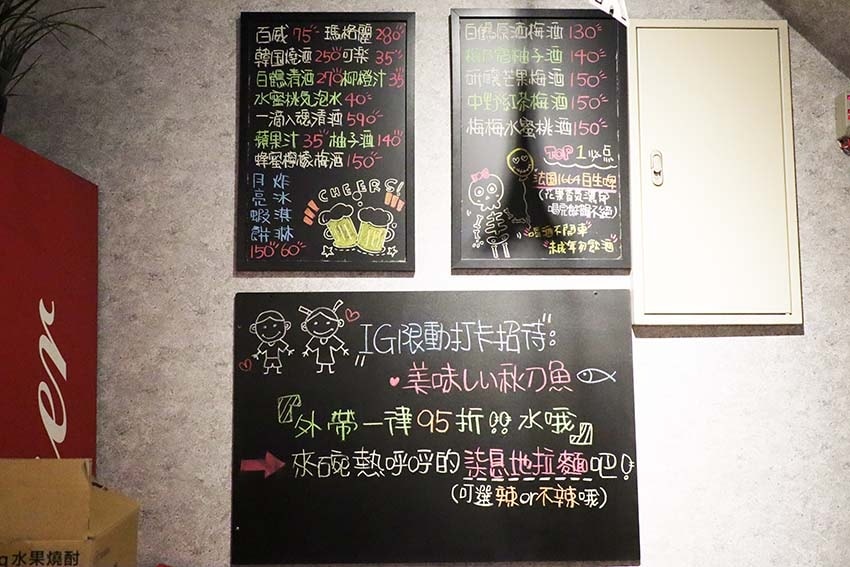 百威 75 瑪格麗 280
韓国燒酒 250 可樂 35
白鶴清酒 270 柳橙汁 35
水蜜桃気泡水 40
一滴入魂清酒 590
蘋果汁 35 柚子酒 140
蜂蜜檸檬梅酒 150
月亮蝦餅 150
炸冰淇淋 60
CHEERS!
白鶴原酒梅酒 130
柚子酒 140
芒果梅酒 150
中野紅茶梅酒 150
梅梅水蜜桃酒 150
TOP 1 必点
法國1664白生啤
喝酒不開車
未成年勿飲酒
IG限動打卡招待:
美味しい秋刀魚
『外帶一律95折!! 水哦』
來碗熱呼呼的柒息地拉麵吧!
(可選辣or不辣哦)
水果燒酎